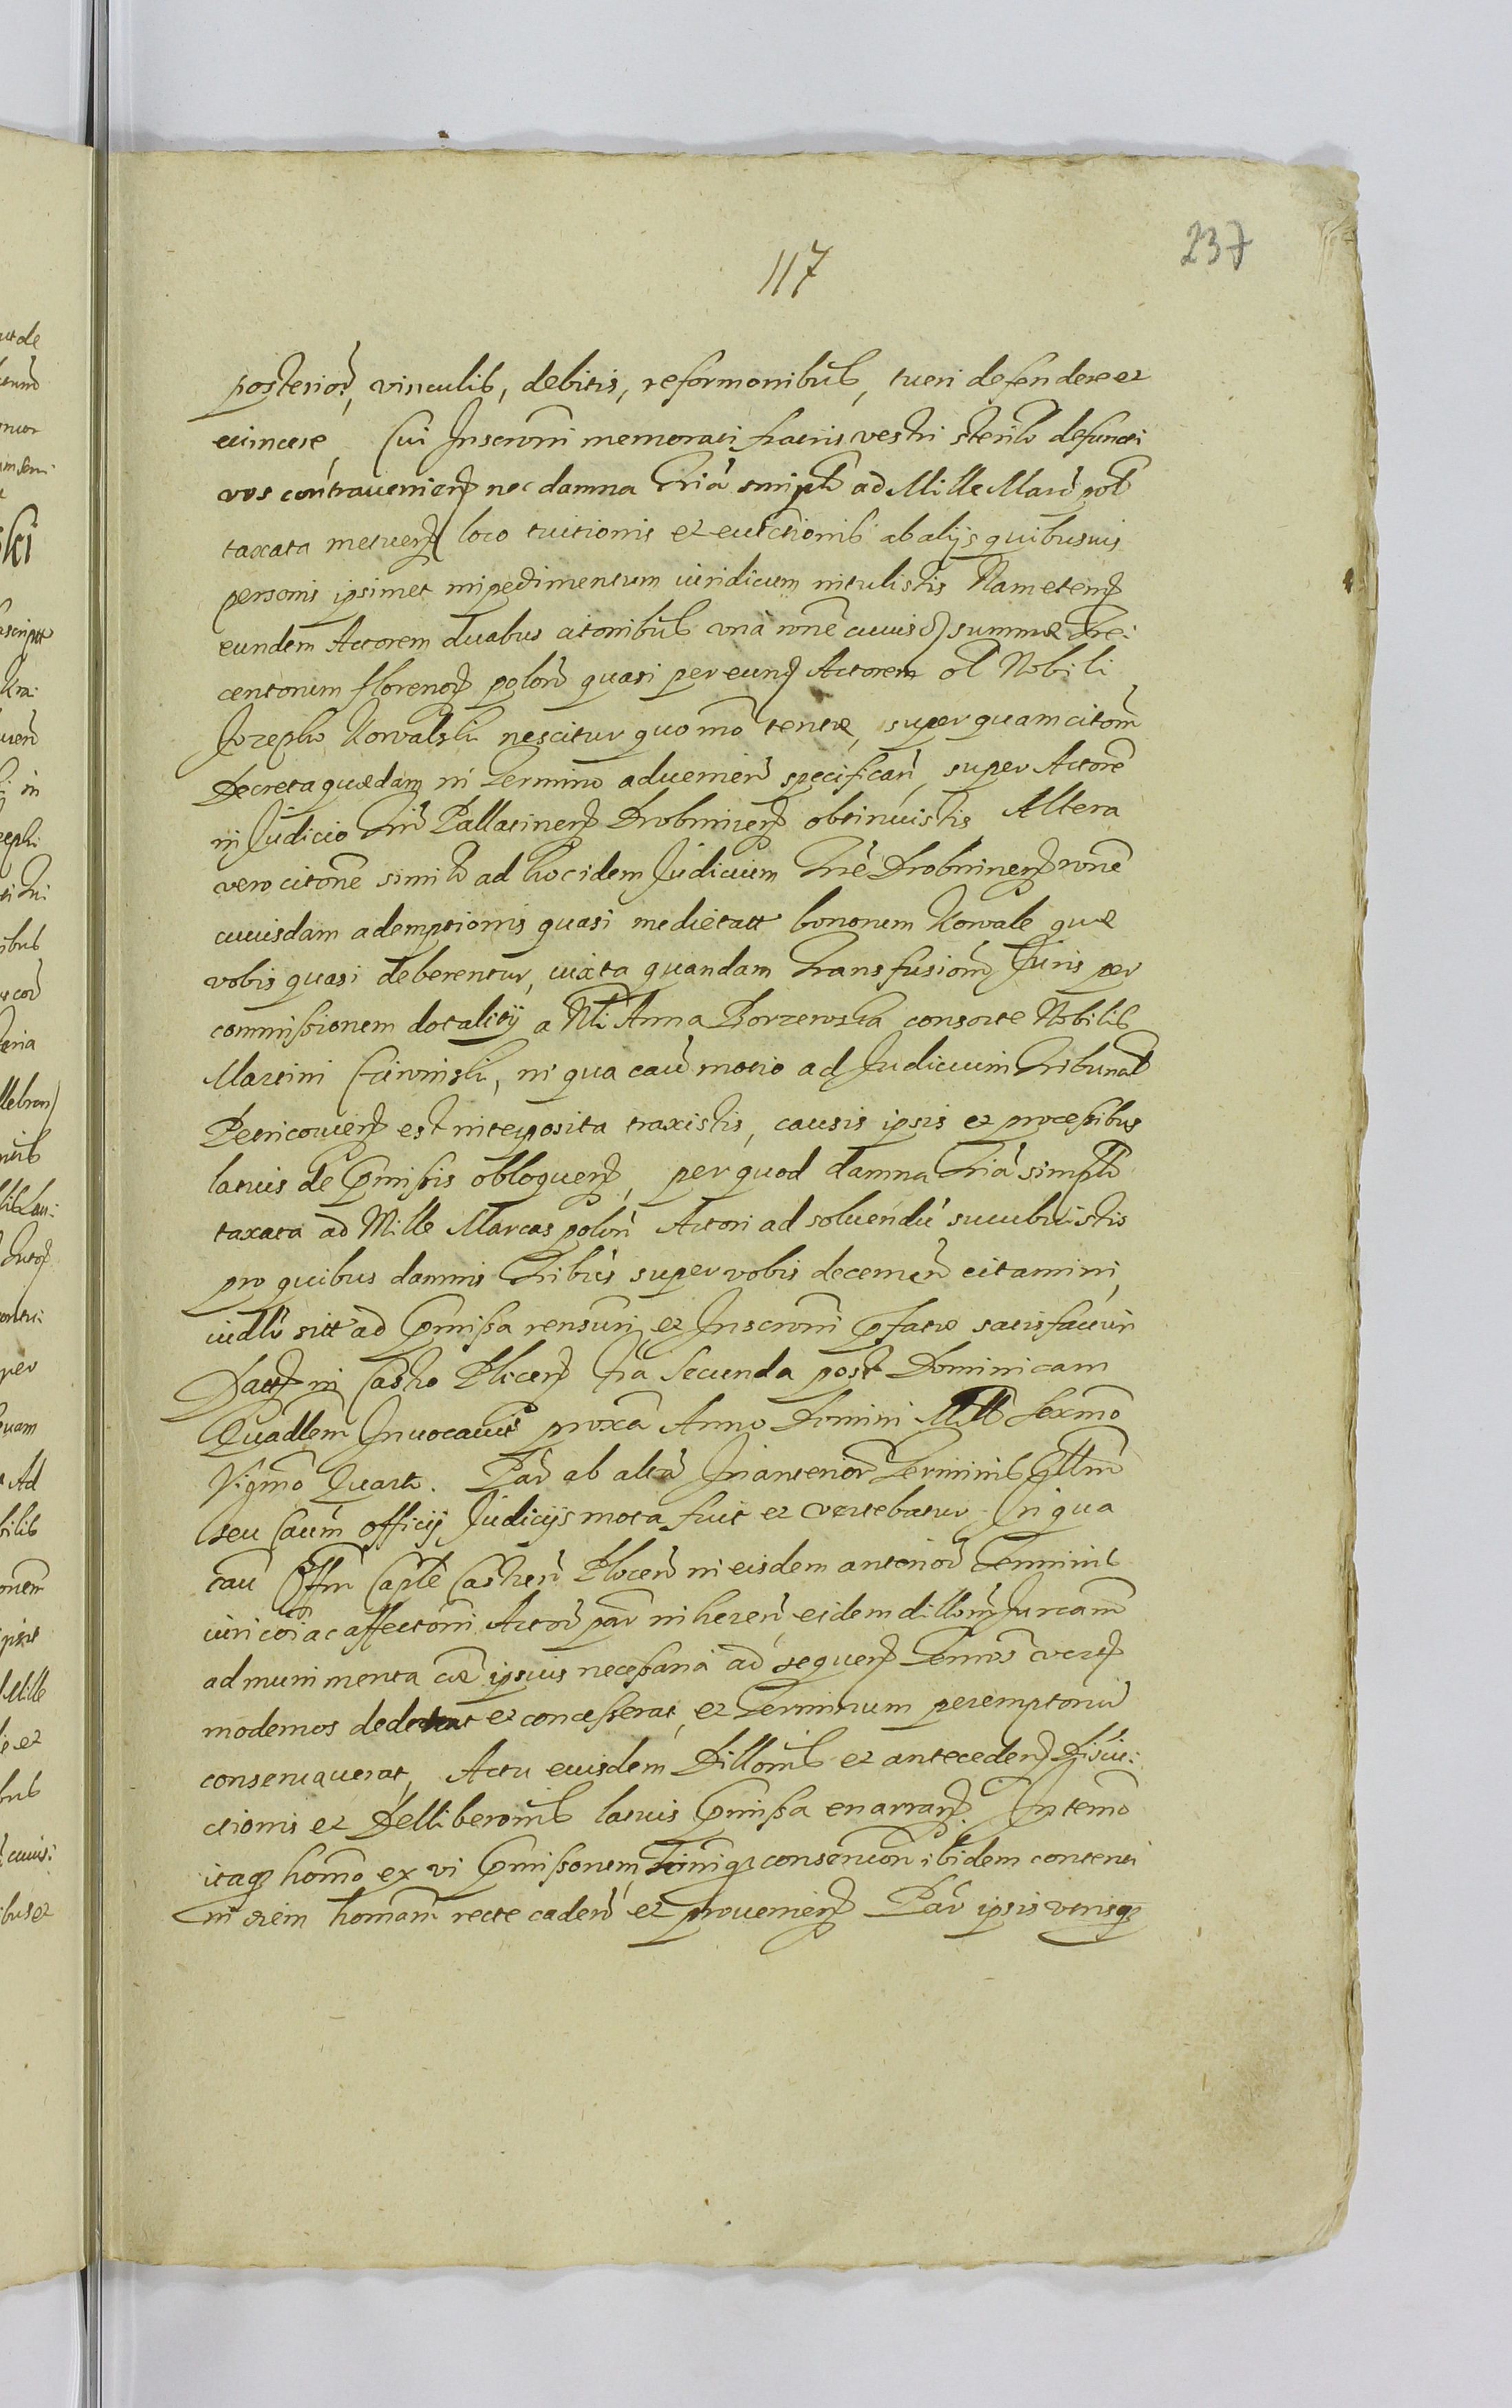 237
117
posterior, vinculis, debitis, reformonibus, tueri defendere et
evincere, Cui Inscroni memorati fratris vestri sterilr defuncti
vos contravenien nec damna tria simplr ad Mille Marc pol
taxata metuen loco tuitionis et evictionis ab alijs quibusvis
personis ipsimet impedimentum iuridicum intulistis Nam et
eundem Actorem duabus citonibus una rone cuiusd summæ Tre:
centorum florenor polon quasi per eund Actorem ol Nobili
Jozepho Kowalski nescitur quo mo tentæ, super quam citom
Decreta quædam in Termino advenien specifican, super Actore
in Judicio Pallatinen Drobninen obtinuistis Altera
vero citone simil ad hoc idem Judicium Drobninen rone
cuiusdam ademptionis quasi medietatt bonorum Kowale quæ
vobis quasi deberentur, iuxta quandam Transfusiom Juris per
commissionem dotalitij a Nli Anna Borzewska consorte Nobilis
Martini, in qua cau motio ad Judicium Tribunal
Petricovien est interposita traxistis, causis ipsis et processibus
latius de Pmissis obloquen, per quod damna tria simplr
taxata ad Mille Marcas polon Actori ad solvendu sucubuistis
pro quibus damnis tribus super vobis decernen citamini,
iudlr sitt ad Pmissa rensuri et Inscroni pfatæ satisfacturi
Datt in Castro Plocen fria Secunda post Dominicam
Quadlem Invocavit proxa Anno Domini Mill Sexmo
Vigmo Quarto. Par ab altra In anterior Terminis
seu Caum officij Judicijs mota fuit et vertebatur In qua
cau Offm Caple Castren Plocen in eisdem anterior Terminis
iuri coi ac affectoni Actor par inheren, eidem dillom Jurcam
ad munimenta cæ ipsius necessaria ad sequen Termos
modernos dederat et concesserat, et Terminum peremptoriu
conservaverat, Actu eiusdem Dillonis et anteceden Discu:
ctionis et Delliberonis latius Pmissa enarran. In temo
itaq homo ex vi Pmissorum consercon ibidem contenti
in rem homam recte caden et provenien Par ipsis utrisq